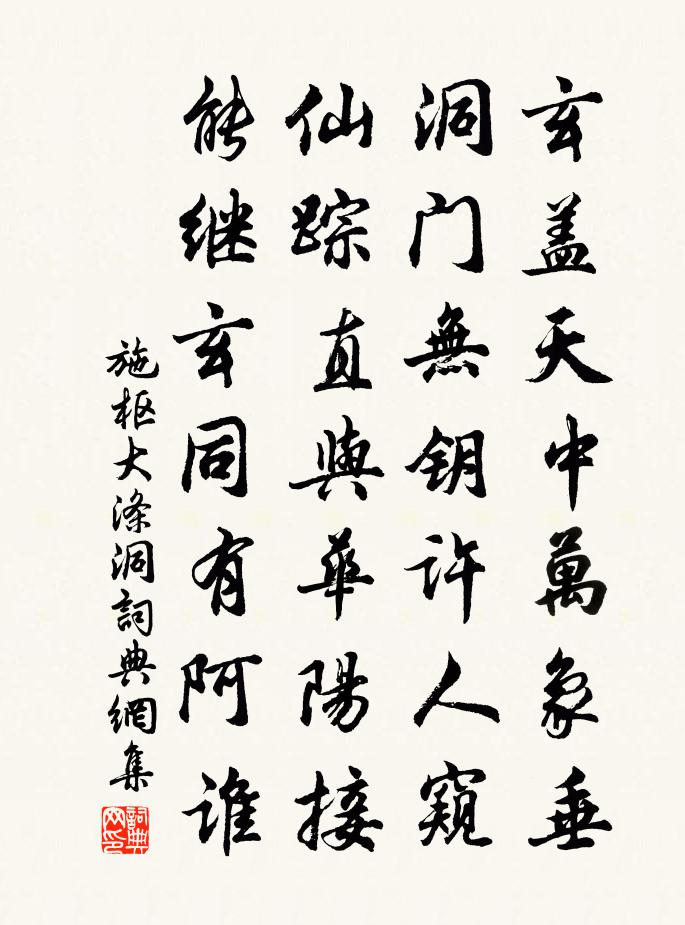 玄盖天中萬象垂
洞门無钥许人窺
仙踪直與華陽接
能继玄同有阿谁
施枢大涤洞詞典網集
詞典网印